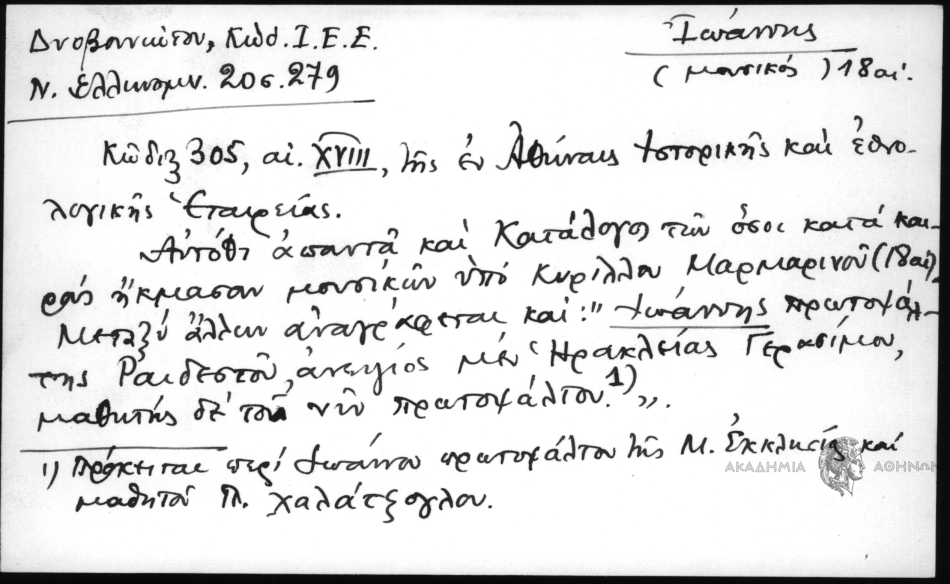 Δυοβουνιώτου, Κώδ. Ι.Ε.Ε.
Ν. Ελληνομν. 20 σ. 279
Ἰωάννης
(μουσικός) 18 αἰ.
Κῶδιξ 305, αἰ. XVIII, τῆς ἐν Ἀθήναις Ἱστορικῆς καὶ ἐθνο-
λογικῆς Ἑταιρείας.
Αὐτόθι ἀπαντᾶ καὶ Κατάλογος τῶν ὅσοι κατά και-
ρούς ἤκμασαν μουσικῶν ὑπό Κυρίλλου Μαρμαρινοῦ (18 αἰ).
Μεταξύ ἄλλων ἀναγράφεται καί: "Ἰωάννης πρωτοψάλ-
της Ραιδεστοῦ, ἀνεψιός μέν Ἡρακλείας Γερασίμου,
μαθητής δέ τοῦ νῦν πρωτοψάλτου.1)".
1) Πρόκειται περί Ἰωάννου πρωτοψάλτου τῆς Μ. Ἐκκλησίας καί
μαθητοῦ Π. Χαλάτζογλου.
ΑΚΑΔΗΜΙΑ ΑΘΗΝΩΝ